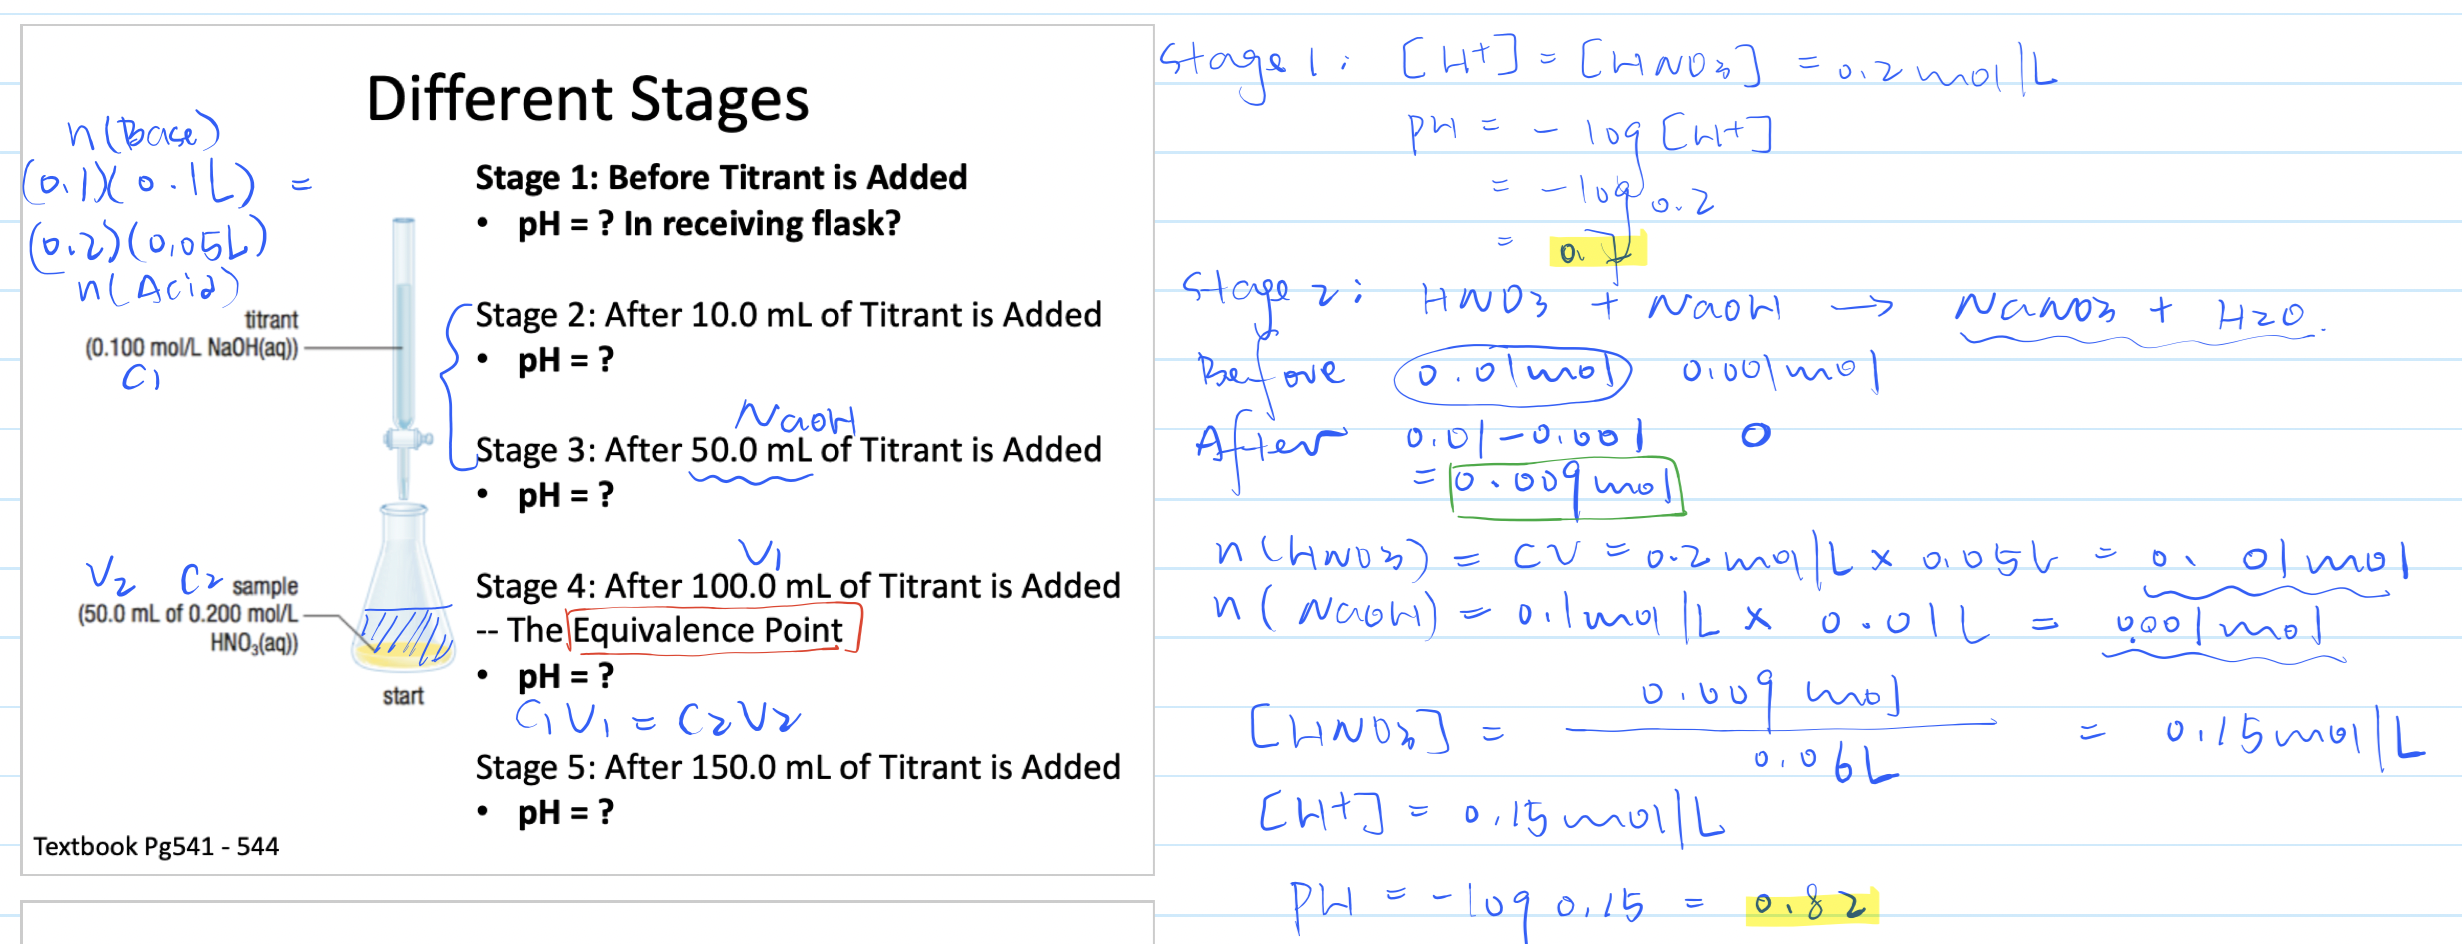 Different Stages
n(Base)
(0.1)(0.1L) =
(0.2)(0.05L)
n(Acid)
titrant
(0.100 mol/L NaOH(aq))
C1
Stage 1: Before Titrant is Added
• pH = ? In receiving flask?
Stage 2: After 10.0 mL of Titrant is Added
• pH = ?
NaOH
Stage 3: After 50.0 mL of Titrant is Added
• pH = ?
V1
Stage 4: After 100.0 mL of Titrant is Added
-- The Equivalence Point
• pH = ?
C1V1 = C2V2
Stage 5: After 150.0 mL of Titrant is Added
• pH = ?
V2 C2 sample
(50.0 mL of 0.200 mol/L
HNO₃(aq))
start
Textbook Pg541 - 544
Stage 1: [H+] = [HNO3] = 0.2 mol/L
pH = - log [H+]
= - log 0.2
= 0.7
Stage 2: HNO3 + NaOH → NaNO3 + H2O.
Before 0.01 mol 0.001 mol
After 0.01-0.001 0
= 0.009 mol
n(HNO3) = CV = 0.2 mol/L x 0.05L = 0.01 mol
n(NaOH) = 0.1 mol/L x 0.01L = 0.001 mol
[HNO3] = 0.009 mol / 0.06L = 0.15 mol/L
[H+] = 0.15 mol/L
pH = -log 0.15 = 0.82